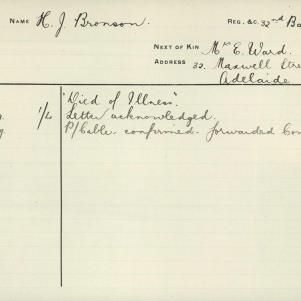 NAME H. J. Bronson. REG. &C. 32nd Ba
NEXT OF KIN Mr E. Ward.
ADDRESS 32. Maxwell Stre
Adelaide
"Died of Illness".
1/L Letter acknowledged.
P/Cable confirmed. forwarded